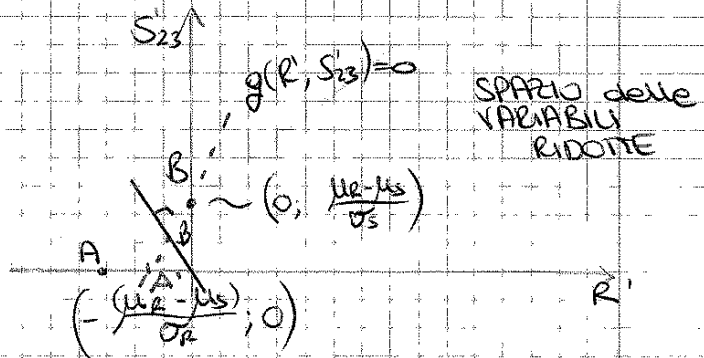 S'23
g(R', S'23)=0
SPAZIO delle
VARIABILI
RIDOTTE
B
(0, μR-μS/σS)
β
A
A'
R'
(-(μR-μS)/σR; 0)